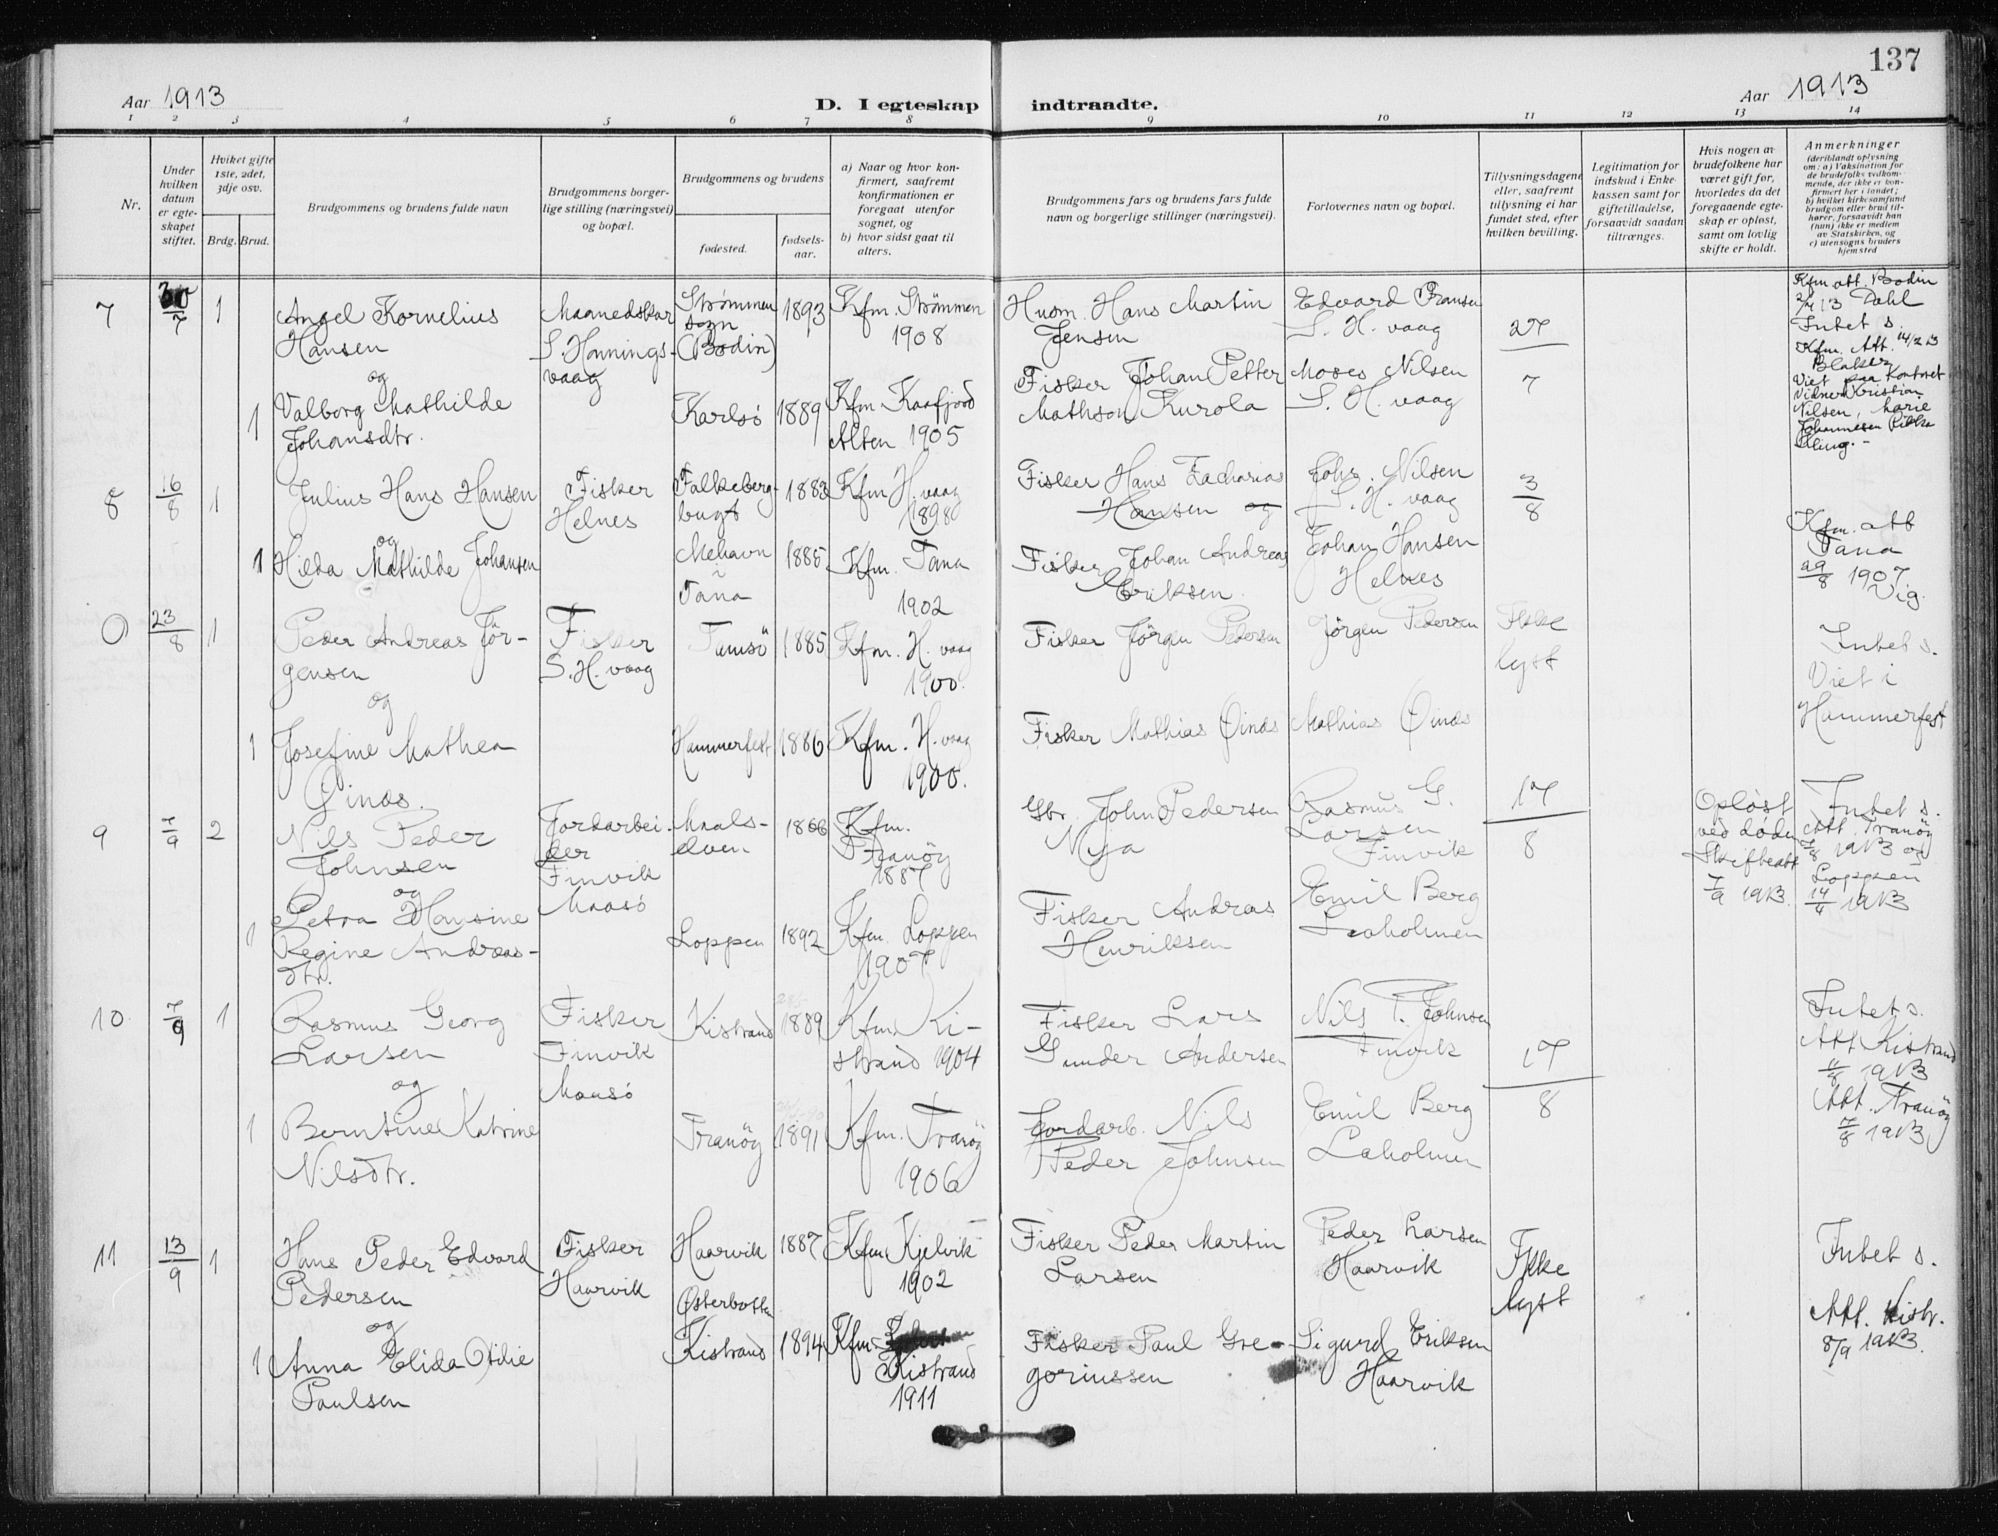 137
Aar 1913
D. I egteskap indtraadte.
Aar 1913
1 2 3 4 5 6 7 8 9 10 11 12 13 14
Nr.
Under
hvilken
datum
er egte-
skapet
stiftet.
Hviket gifte
1ste, 2det,
3dje osv.
Brdg. Brud.
Brudgommens og brudens fulde navn
Brudgommens borger-
lige stilling (næringsvei)
og bopæl.
Brudgommens og brudens
fødested.
fødsels-
aar.
a) Naar og hvor kon-
firmert, saafremt
konfirmationen er
foregaat utenfor
sognet, og
b) hvor sidst gaat til
alters.
Brudgommens fars og brudens fars fulde
navn og borgerlige stillinger (næringsvei).
Forlovernes navn og bopæl.
Tillysningsdagene
eller, saafremt
tillysning ei har
fundet sted, efter
hvilken bevilling.
Legitimation for
indskud i Enke-
kassen samt for
giftetilladelse,
forsaavidt saadan
tiltrænges.
Hvis nogen av
brudefolkene har
været gift før,
hvorledes da det
foregaaende egte-
skap er opløst,
samt om lovlig
skifte er holdt.
Anmerkninger
(deriblandt oplysning
om: a) Vaksination for
de brudefolks vedkom-
mende, der ikke er kon-
firmert her i landet;
b) hvilket kirkesamfund
brudgom eller brud til-
hører, forsaavidt han
(hun) ikke er medlem
av Statskirken, og
c) utensogns bruders
hjemsted
7
30/7
1
Angel Kornelius
Hansen
og
Maanedskar
S. Honnings-
vaag
Strømmen
sogn
(Bodin)
1893
Kfm. Strømmen
1908
Husm. Hans Martin
Jensen
Edvard Fransen
S. H. vaag
27
7
Kfm att. Bodin
2/7 13 Dahl
Intet s.
Kfm. Att. 14/2 13
Viet paa Kontoret
Kristian
Nilsen, Marie
Johannesen
1
Valborg Mathilde
Johansdtr.
Karlsö
1889
Kfm. Kaafjord
Alten 1905
Fisker Johan Petter
Mathson Kurola
Moses Nilsen
S. H. vaag
8
16/8
1
Julius Hans Hansen
og
Fisker
Helnes
Falkeberg-
bugt
1883
Kfm H. vaag
1898
Fisker Hans Zacharias
Hansen og
Johs. Nilsen
S. H. vaag
3/8
1
Hilda Mathilde Johansen
Mehavn
i
Tana
1885
Kfm. Tana
1902
Fisker Johan Andreas
Eriksen.
Johan Hansen
Helnes
Kfm. att
Tana
29/8 1907.
Vig.
0
23/8
1
Peder Andreas Jör-
gensen
og
Fisker
S. H. vaag
Tamsö
1885
Kfm. H. vaag
1900.
Fisker Jörgen Pedersen
Jörgen Pedersen
Ikke
lyst
Intet s.
Viet i
Hammerfest
1
Josefine Mathea
Øinæs.
Hammerfest
1886
Kfm. H. vaag
1900.
Fisker Mathias Øinæs
Mathias Øinæs
9
7/9
2
Nils Peder
Johnsen
og
Jordarbei-
der
Finvik
Maasö
Maals-
elven
1866
Kfm.
Tranöy
1887
Gbr. John Pedersen
Rasmus G.
Larsen
Finvik
17/8
Opløst
ved døden
Skifteatt
7/9 1913.
Intet s.
Att. Tranöy
7/8 1913 og
Loppen
14/4 1913
1
Petra Hansine
Regine Andreas-
dtr.
Loppen
1892
Kfm. Loppen
1907
Fisker Andreas
Henriksen
Emil Berg
Laholmen
10
7/9
1
Rasmus Georg
Larsen
og
Fisker
Finvik
Maasö
Kistrand
1889
Kfm. Ki-
strand 1904
Fisker Lars
Gunder Andersen
Nils P. Johnsen
Finvik
17/8
Intet s.
Att Kistrand
11/8 1913
Att. Tranöy
7/8 1913
1
Berntine Katrine
Nilsdtr.
Tranöy
1891
Kfm. Tranöy
1906
Jordarb. Nils
Peder Johnsen
Emil Berg
Laholmen
11
13/9
1
Hans Peder Edvard
Pedersen
og
Fisker
Haarvik
Haarvik
1887
Kfm Kjelvik
1902
Fisker Peder Martin
Larsen
Peder Larsen
Haarvik
Ikke
lyst
Intet s.
Att. Kistr.
8/9 1913.
1
Anna Elida Otilie
Paulsen
Østerbotten
Kistrand
1894
Kfm
Kistrand
1911
Fisker Paul Gre-
goriussen
Sigurd Eriksen
Haarvik